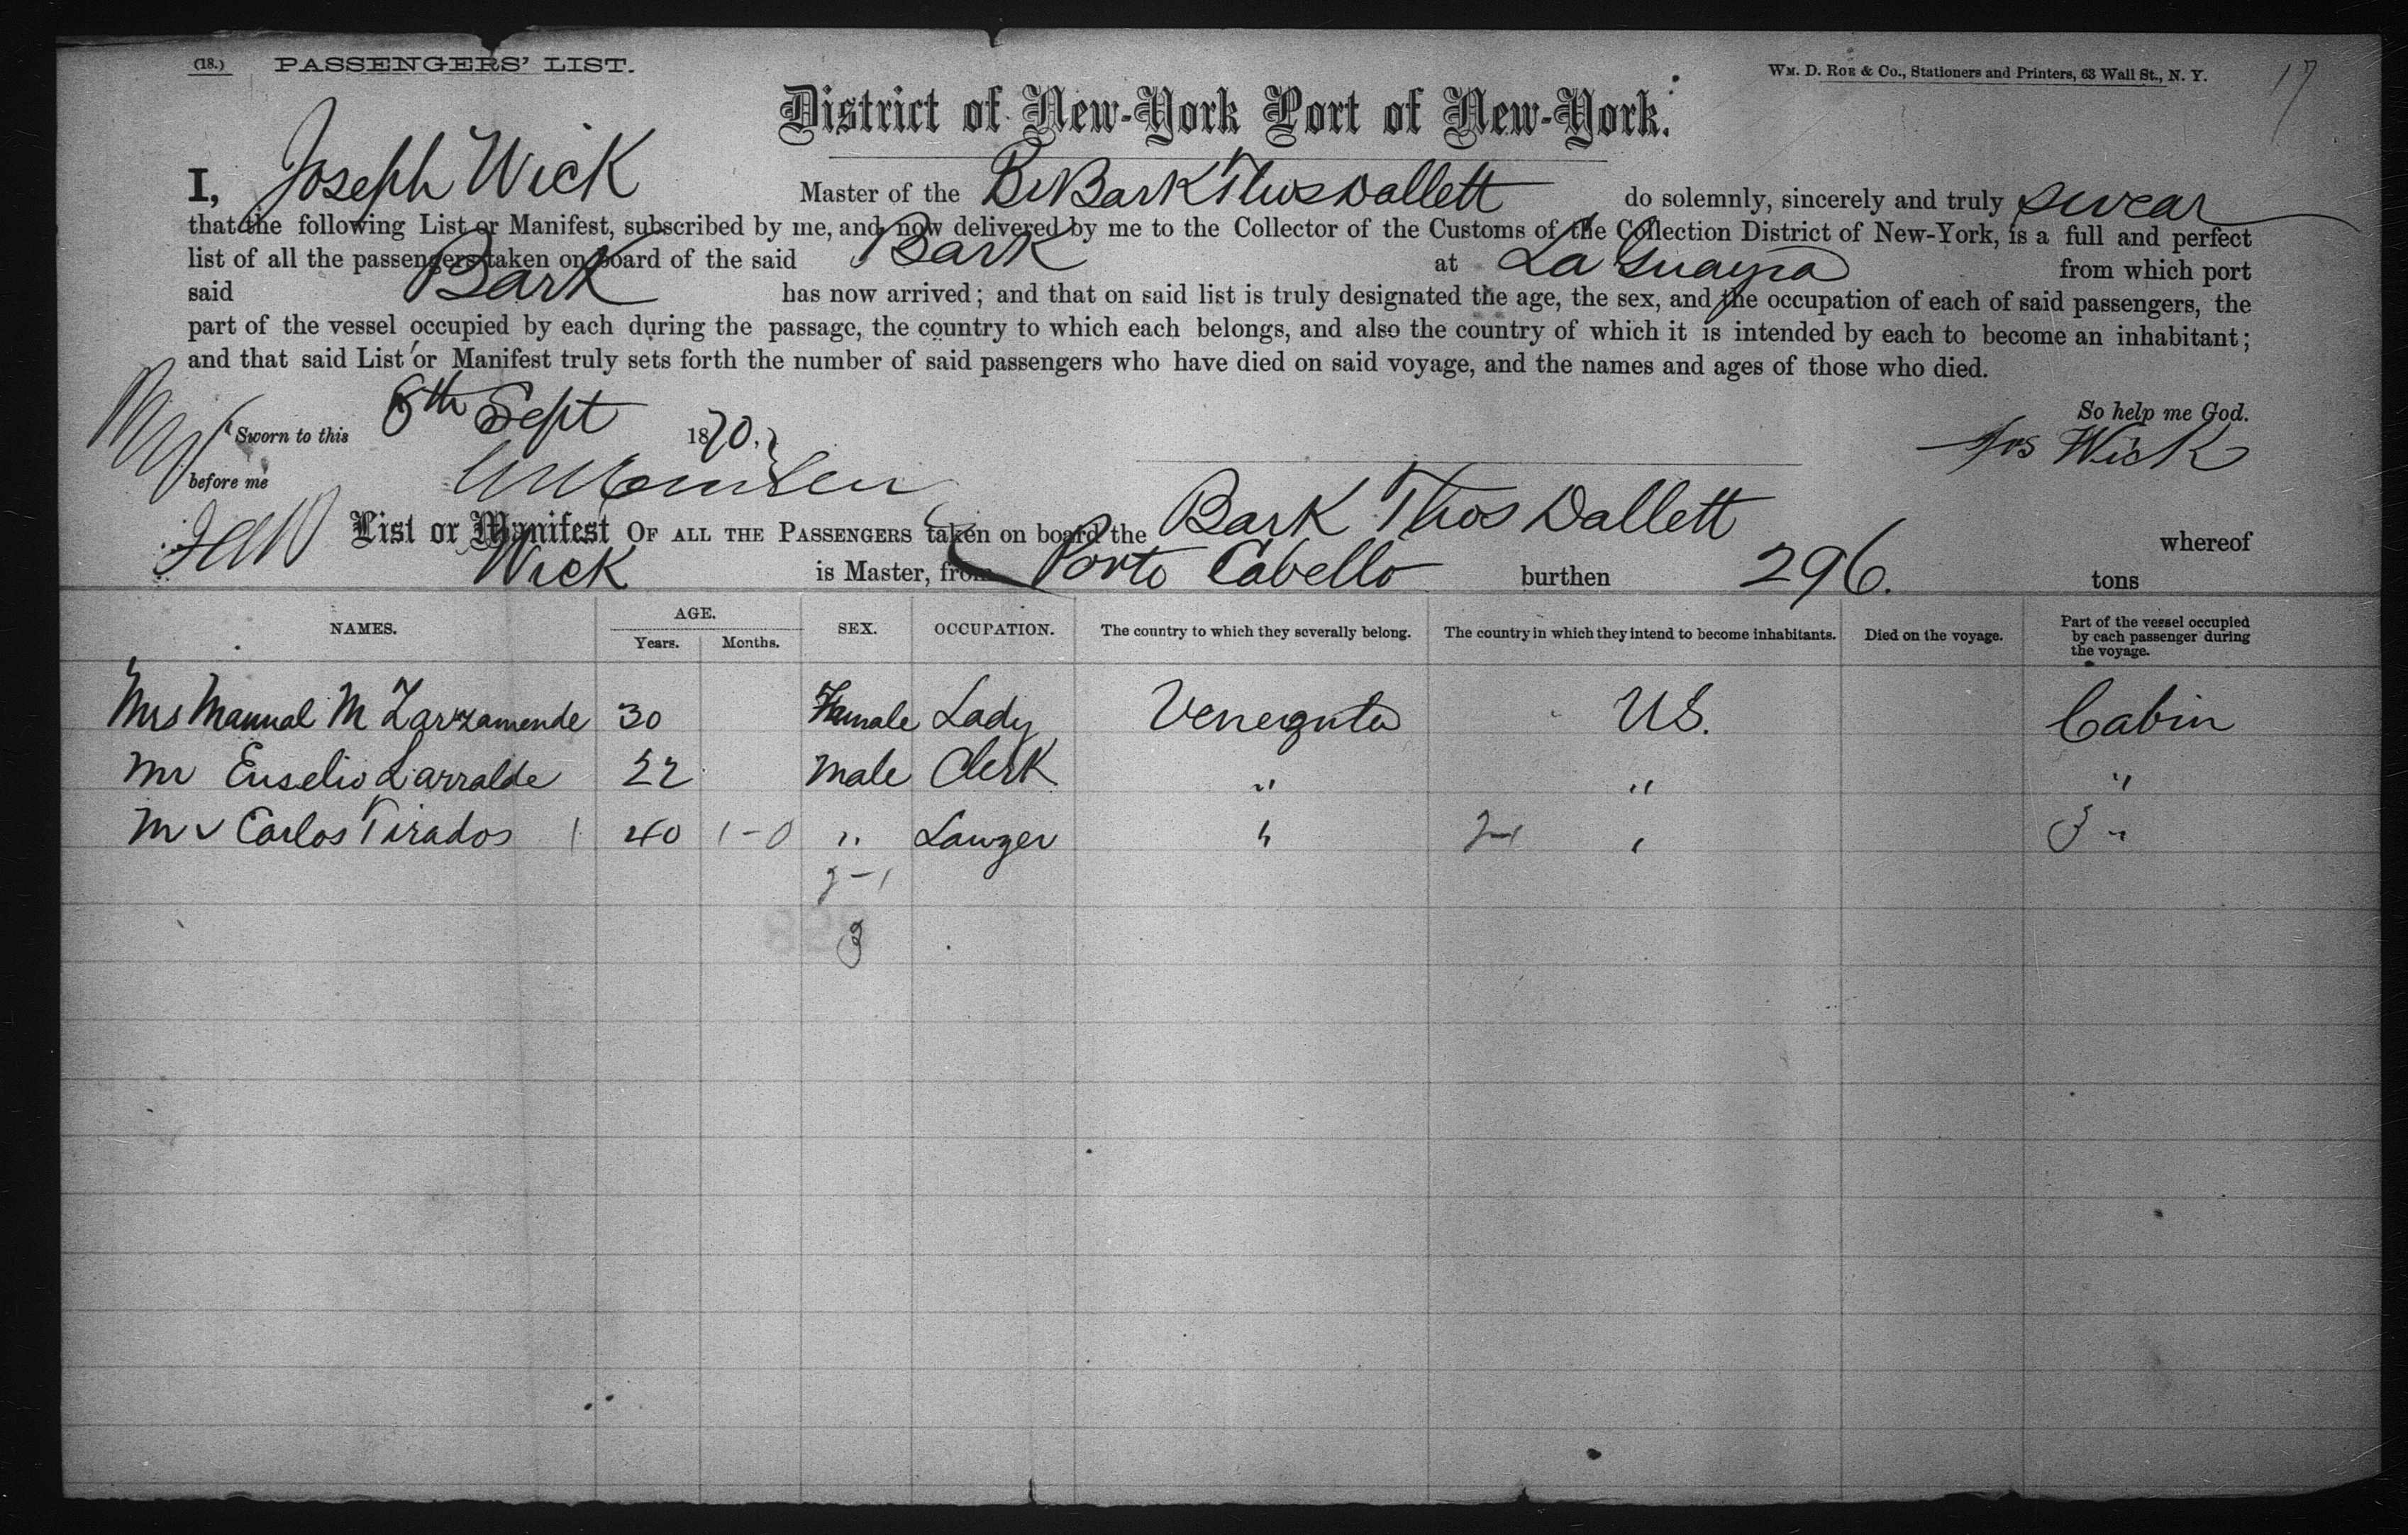 (18.) PASSENGERS' LIST. Wm. D. Roe & Co., Stationers and Printers, 63 Wall St., N. Y. 17
District of New-York Port of New-York.
I, Joseph Wick Master of the Br Bark Thos Dallett do solemnly, sincerely and truly swear
that the following List or Manifest, subscribed by me, and now delivered by me to the Collector of the Customs of the Collection District of New-York, is a full and perfect
list of all the passengers taken on board of the said Bark at La Guayra from which port
said Bark has now arrived; and that on said list is truly designated the age, the sex, and the occupation of each of said passengers, the
part of the vessel occupied by each during the passage, the country to which each belongs, and also the country of which it is intended by each to become an inhabitant;
and that said List or Manifest truly sets forth the number of said passengers who have died on said voyage, and the names and ages of those who died.
So help me God.
Sworn to this 8th Sept 1870. Jos Wick
before me
List or Manifest OF ALL THE PASSENGERS taken on board the Bark Thos Dallett whereof
Wick is Master, from Porto Cabello burthen 296. tons
NAMES. AGE. Years. Months. SEX. OCCUPATION. The country to which they severally belong. The country in which they intend to become inhabitants. Died on the voyage. Part of the vessel occupied by each passenger during the voyage.
Mrs Manual M Larzamende 30 Female Lady Venezuta U S. Cabin
Mr Euselio Larralde 22 Male Clerk " " "
Mr Carlos Tirados 1 40 1-0 " Lawyer " " 3 "
2-1
3